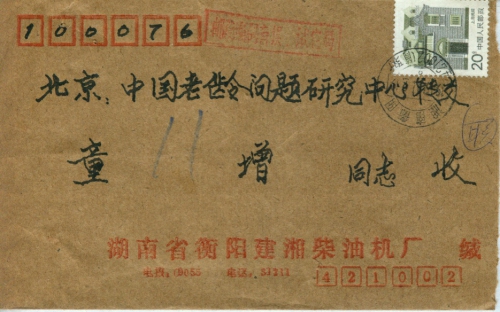 100076
北京:中国老龄问题研究中心转交
童 增 同志 收
湖南省衡阳建湘柴油机厂 缄
421002
20分
中国人民邮政